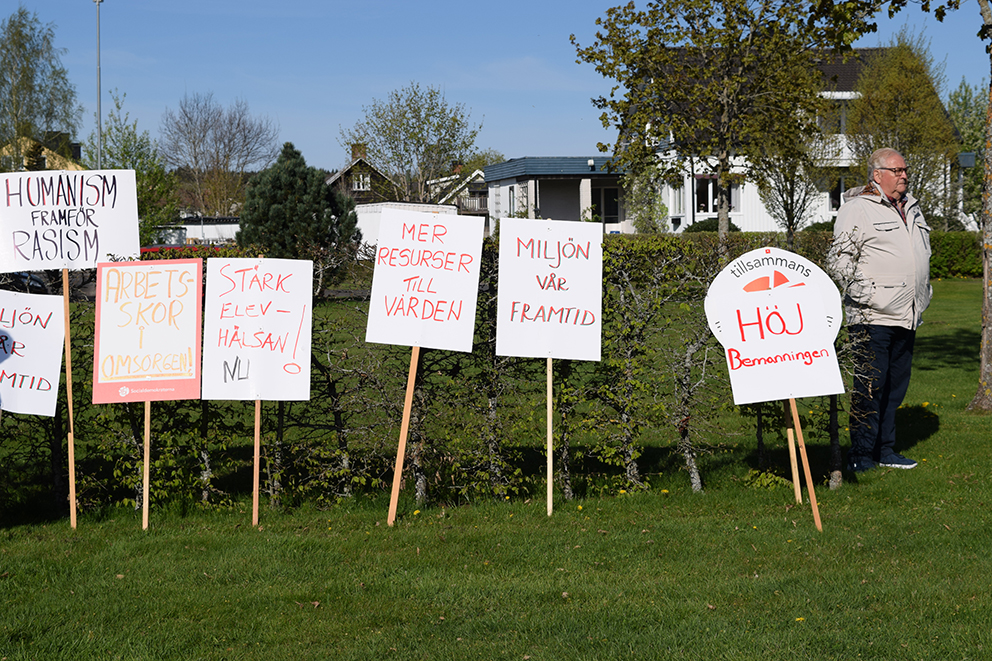 HUMANISM
FRAMFÖR
RASISM
ILJÖN
ÅR
AMTID
ARBETS-
SKOR
I
OMSORGEN!
STÄRK
ELEV-
HÄLSAN!
NU
MER
RESURSER
TILL
VÅRDEN
MILJÖN
VÅR
FRAMTID
tillsammans
HÖJ
Bemanningen